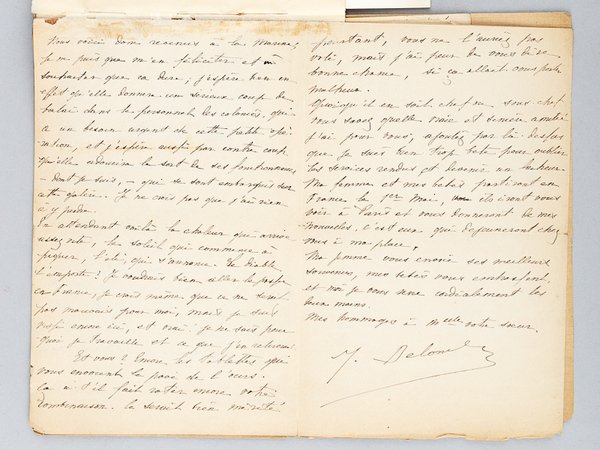 Vous voici donc revenus à la marine,
Je ne puis que m'en féliciter et
souhaiter que ça dure; j'espère bien en
effet qu'elle donnera un sérieux coup de
balai dans le personnel des colonies, qui
a un besoin urgent de cette petite opé-
ration, et j'espère aussi par contre coup
qu'elle adoucira le sort de ses fonctionnaires,
- dont je suis, - qui se sont embarqués sur
cette galère. Je ne crois pas que j'aie rien
à y perdre.
En attendant voilà la chaleur qui arrive
assez vite, le soleil qui commence à
piquer, l'été qui s'annonce. Le diable
l'emporte! Je voudrais bien aller le passer
en France, je crois même que ce ne serait
pas mauvais pour moi, mais je suis
visé encore ici, et vrai je ne sais pour
quoi je travaille et ce que j'en retirerai.
Et vous? Encore les tablettes qui
vous envoient la peau de l'ours.
Ça a-t-il fait rater encore votre
combinaison. Ça serait bien mérité
pourtant, vous ne l'auriez pas
volé, mais j'ai peur de vous dire
bonne chance, si ça allait vous porter
malheur.
Quoiqu'il en soit chef ou sous chef
vous savez quelle vraie et sincère amitié
j'ai pour vous, ajoutez par là dessus
que je suis bien trop bête pour oublier
les services rendus et devenir un lâcheur.
Ma femme et mes bébés partiront en
France le 1er Mai, ils iront vous
voir à Paris et vous donneront de mes
nouvelles, c'est eux qui déjeuneront chez
à ma place.
Ma femme vous envoie ses meilleurs
souvenirs, mes bébés vous embrassent,
et moi je vous serre cordialement les
deux mains.
Mes hommages à Melle votre sœur.